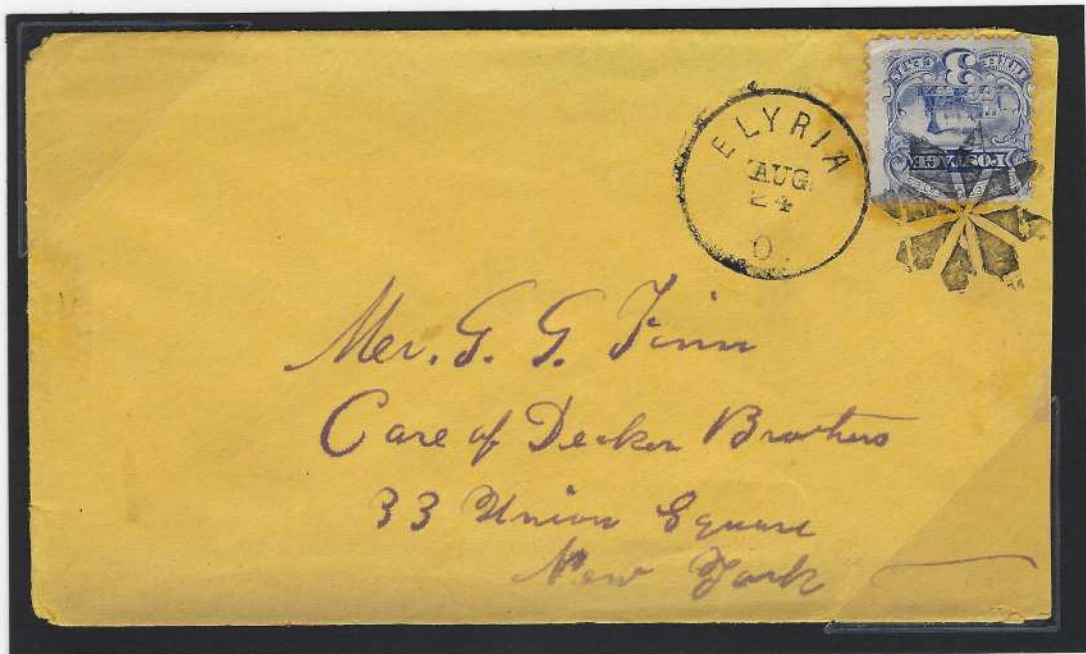 ELYRIA
AUG
24
O.
POSTAGE
THREE CENTS
3
Mr. G. G. Finn
Care of Decker Brothers
33 Union Square
New York